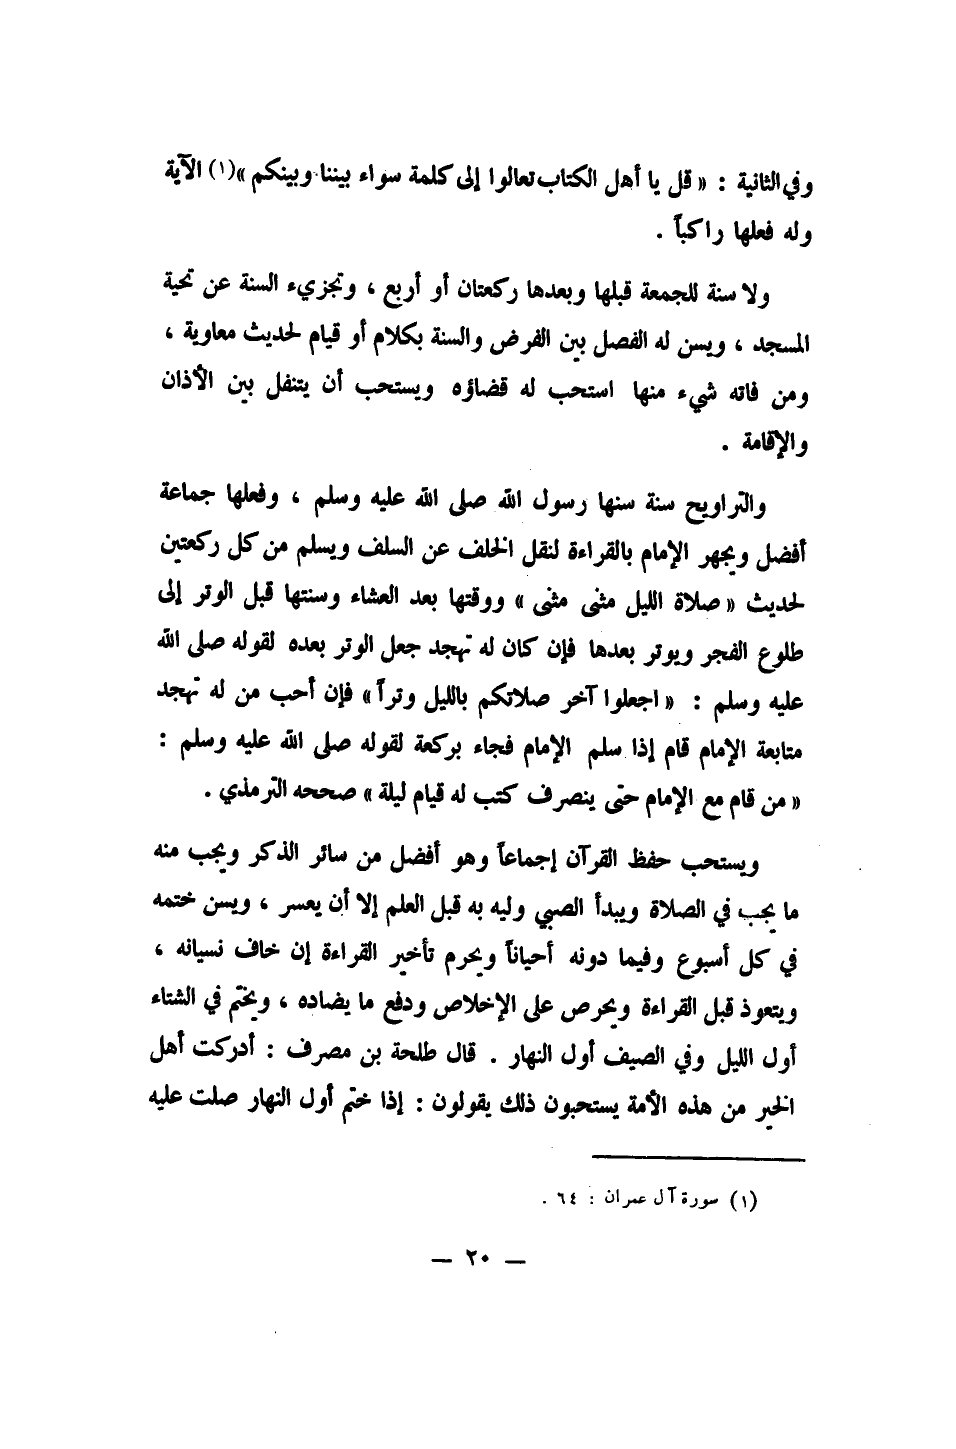 وفي الثانية : « قل يا أهل الكتاب تعالوا إلى كلمة سواء بيننا وبينكم »(١) الآية
وله فعلها راكباً .
ولا سنة للجمعة قبلها وبعدها ركعتان أو أربع ، وتجزيء السنة عن تحية
المسجد ، ويسن له الفصل بين الفرض والسنة بكلام أو قيام لحديث معاوية ،
ومن فاته شيء منها استحب له قضاؤه ويستحب أن يتنفل بين الأذان
والإقامة .
والتراويح سنة سنها رسول الله صلى الله عليه وسلم ، وفعلها جماعة
أفضل ويجهر الإمام بالقراءة لنقل الخلف عن السلف ويسلم من كل ركعتين
لحديث « صلاة الليل مثنى مثنى » ووقتها بعد العشاء وسنتها قبل الوتر إلى
طلوع الفجر ويوتر بعدها فإن كان له تهجد جعل الوتر بعده لقوله صلى الله
عليه وسلم : « اجعلوا آخر صلاتكم بالليل وتراً » فإن أحب من له تهجد
متابعة الإمام قام إذا سلم الإمام فجاء بركعة لقوله صلى الله عليه وسلم :
« من قام مع الإمام حتى ينصرف كتب له قيام ليلة » صححه الترمذي .
ويستحب حفظ القرآن إجماعاً وهو أفضل من سائر الذكر ويجب منه
ما يجب في الصلاة ويبدأ الصبي وليه به قبل العلم إلا أن يعسر ، ويسن ختمه
في كل أسبوع وفيما دونه أحياناً ويحرم تأخير القراءة إن خاف نسيانه ،
ويتعوذ قبل القراءة ويحرص على الإخلاص ودفع ما يضاده ، ويختم في الشتاء
أول الليل وفي الصيف أول النهار . قال طلحة بن مصرف : أدركت أهل
الخير من هذه الأمة يستحبون ذلك يقولون : إذا ختم أول النهار صلت عليه
(١) سورة آل عمران : ٦٤ .
— ٢٠ —